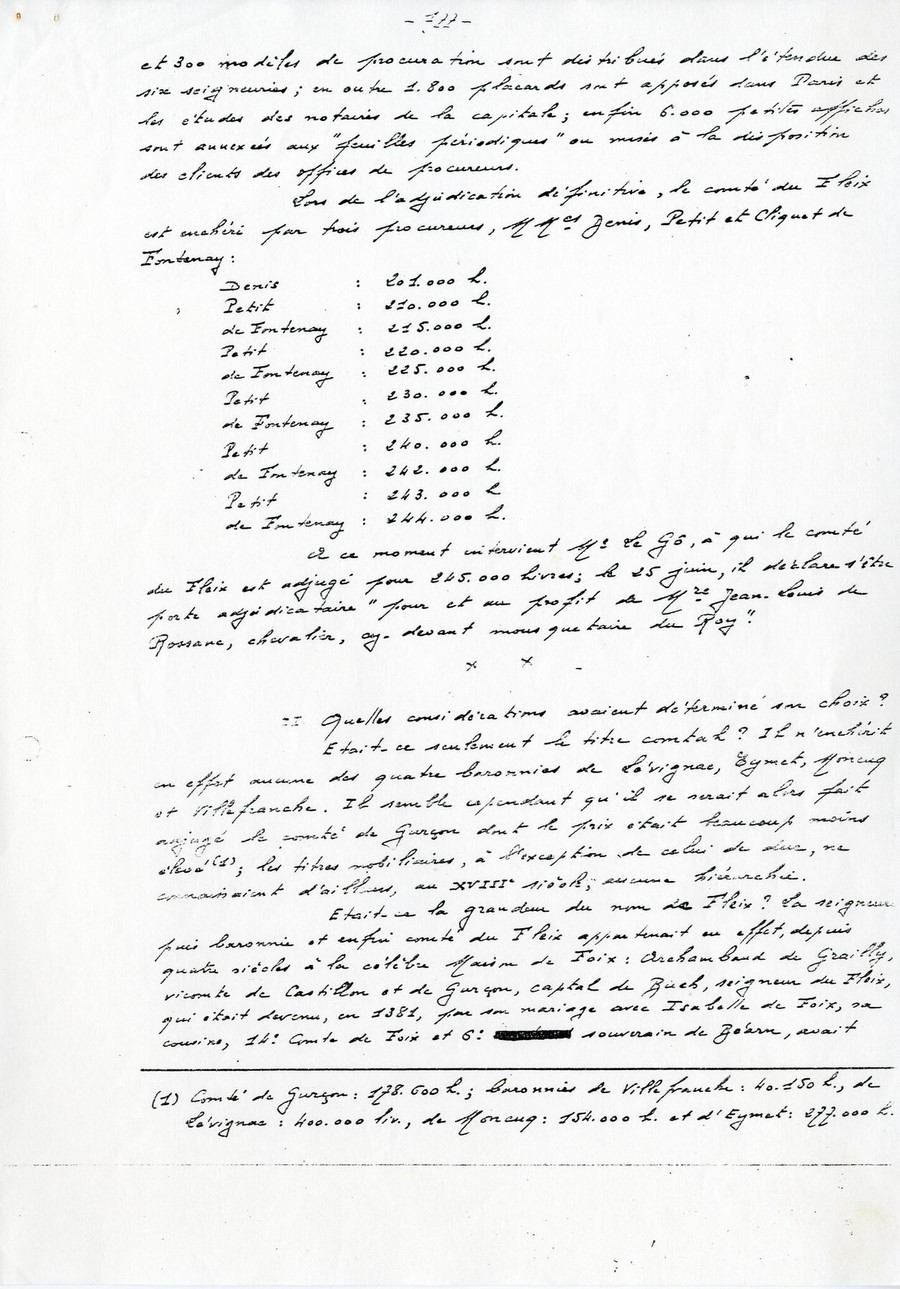 et 300 modèles de procuration sont distribués dans l'étendue des
six seigneuries; en outre 1.800 placards sont apposés dans Paris et
les études des notaires de la capitale; enfin 6.000 petites affiches
sont annexées aux "feuilles périodiques" ou mises à la disposition
des clients des offices de procureurs.
Lors de l'adjudication définitive, le comté du Fleix
est enchéri par trois procureurs, MMes Denis, Petit et Cliquet de
Fontenay:
Denis : 201.000 L.
Petit : 210.000 L.
de Fontenay : 215.000 L.
Petit : 220.000 L.
de Fontenay : 225.000 L.
Petit : 230.000 L.
de Fontenay : 235.000 L.
Petit : 240.000 L.
de Fontenay : 242.000 L.
Petit : 243.000 L
de Fontenay : 244.000 L.
A ce moment intervient Me Le Gô, à qui le comté
du Fleix est adjugé pour 245.000 livres; le 25 juin, il déclare s'être
porté adjudicataire "pour et au profit de Mre Jean-Louis de
Rossane, chevalier, cy-devant mousquetaire du Roy".
x x -
I Quelles considérations avaient déterminé son choix?
Etait-ce seulement le titre comtal? Il n'enchérit
en effet aucune des quatre baronnies de Lévignac, Eymet, Moncuq
et Villefranche. Il semble cependant qu'il se serait alors fait
adjugé le comté de Gurçon dont le prix était beaucoup moins
élevé (1); les titres nobiliaires, à l'exception de celui de duc, ne
connaissaient d'ailleurs, au XVIIIe siècle, aucune hiérarchie.
Etait-ce la grandeur du nom de Fleix? La seigneurie
puis baronnie et enfin comté du Fleix appartenait en effet, depuis
quatre siècles à la célèbre Maison de Foix: Archambaud de Grailly,
vicomte de Castillon et de Gurçon, captal de Buch, seigneur du Fleix,
qui était devenu, en 1381, par son mariage avec Isabelle de Foix, sa
cousine, 14e Comte de Foix et 6e souverain de Béarn, avait
(1) Comté de Gurçon: 178.600 L.; baronnies de Villefranche: 40.150 L., de
Lévignac: 400.000 liv., de Moncuq: 154.000 L. et d'Eymet: 277.000 L.